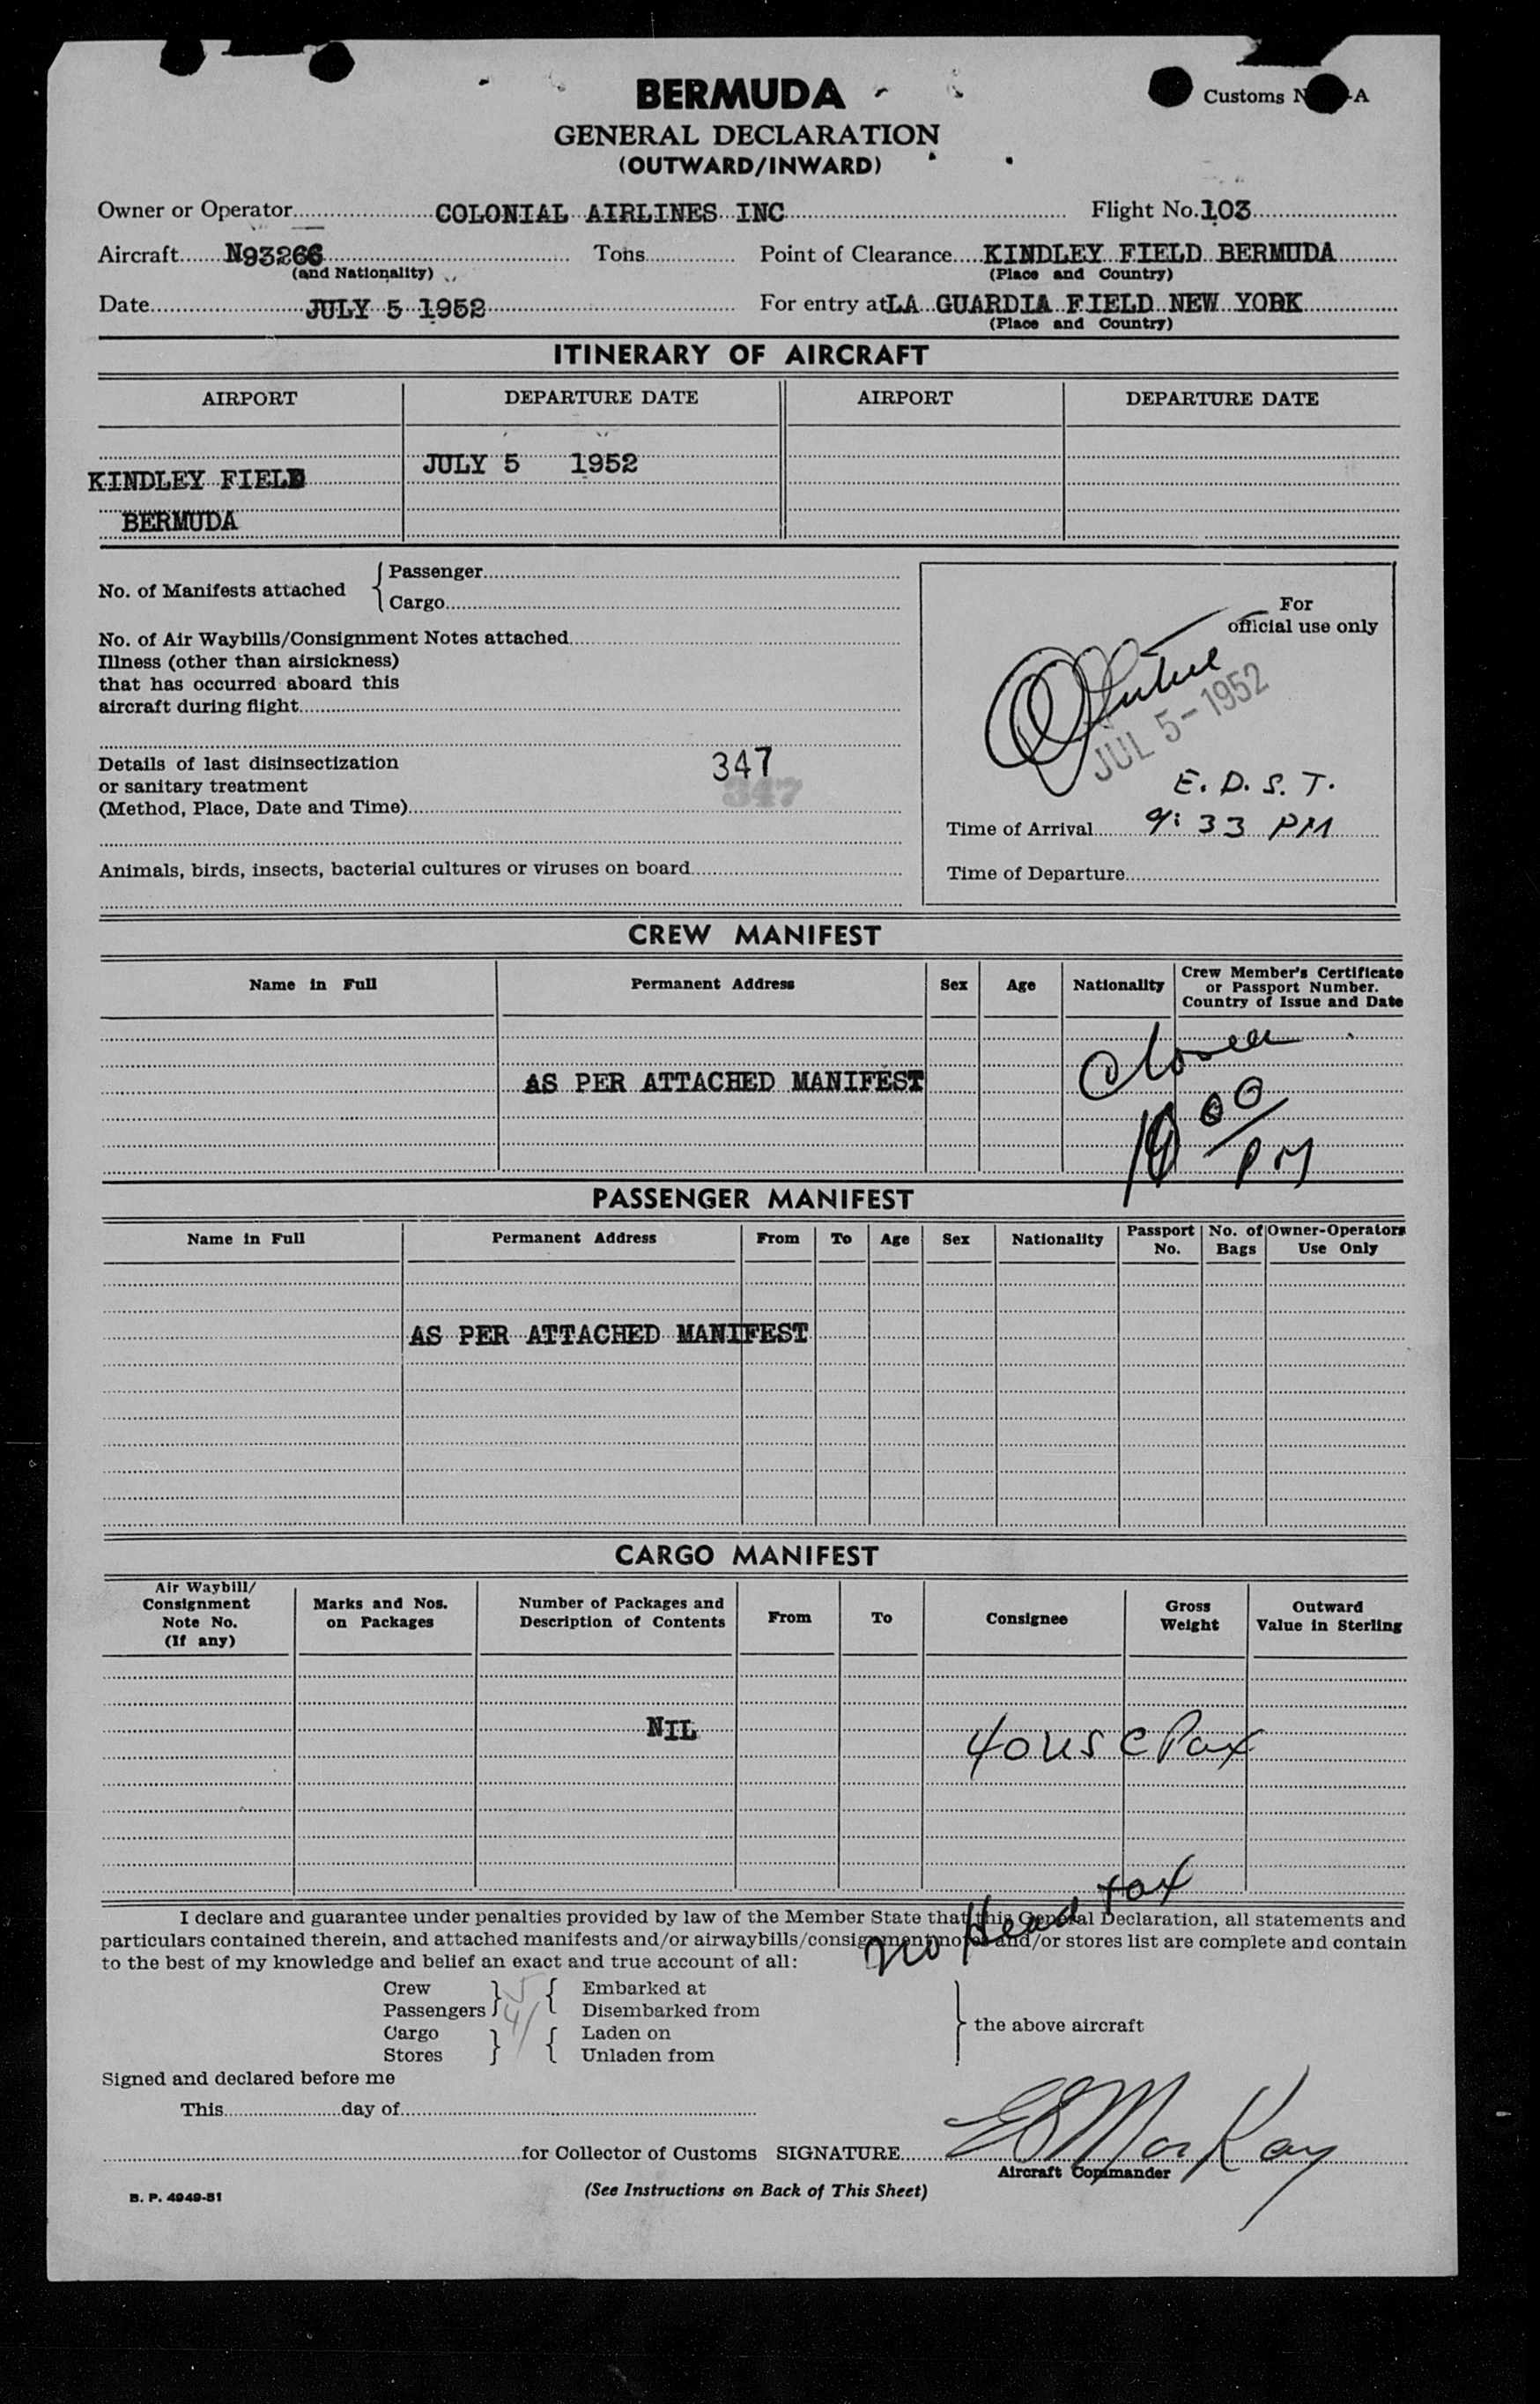 BERMUDA
Customs N -A
GENERAL DECLARATION
(OUTWARD/INWARD)
Owner or Operator COLONIAL AIRLINES INC Flight No. 103
Aircraft N93266 Tons Point of Clearance KINDLEY FIELD BERMUDA
(and Nationality) (Place and Country)
Date JULY 5 1952 For entry at LA GUARDIA FIELD NEW YORK
(Place and Country)
ITINERARY OF AIRCRAFT
AIRPORT DEPARTURE DATE AIRPORT DEPARTURE DATE
JULY 5 1952
KINDLEY FIELD
BERMUDA
No. of Manifests attached { Passenger
Cargo
No. of Air Waybills/Consignment Notes attached
Illness (other than airsickness)
that has occurred aboard this
aircraft during flight
Details of last disinsectization
or sanitary treatment
(Method, Place, Date and Time)
347
347
Animals, birds, insects, bacterial cultures or viruses on board
For
official use only
JUL 5-1952
E. D. S. T.
Time of Arrival 9:33 PM
Time of Departure
CREW MANIFEST
Name in Full Permanent Address Sex Age Nationality Crew Member's Certificate
or Passport Number.
Country of Issue and Date
AS PER ATTACHED MANIFEST
10 00
PM
PASSENGER MANIFEST
Name in Full Permanent Address From To Age Sex Nationality Passport No. No. of Bags Owner-Operators Use Only
AS PER ATTACHED MANIFEST
CARGO MANIFEST
Air Waybill/
Consignment
Note No.
(If any)
Marks and Nos.
on Packages
Number of Packages and
Description of Contents
From To Consignee
Gross
Weight
Outward
Value in Sterling
NIL
40 USC Pax
no Head tax
I declare and guarantee under penalties provided by law of the Member State that this General Declaration, all statements and
particulars contained therein, and attached manifests and/or airwaybills/consignment notes and/or stores list are complete and contain
to the best of my knowledge and belief an exact and true account of all:
Crew } 5 { Embarked at
Passengers 41 Disembarked from
Cargo } { Laden on
Stores Unladen from
} the above aircraft
Signed and declared before me
This day of
for Collector of Customs SIGNATURE E MacKay
Aircraft Commander
B. P. 4949-51
(See Instructions on Back of This Sheet)